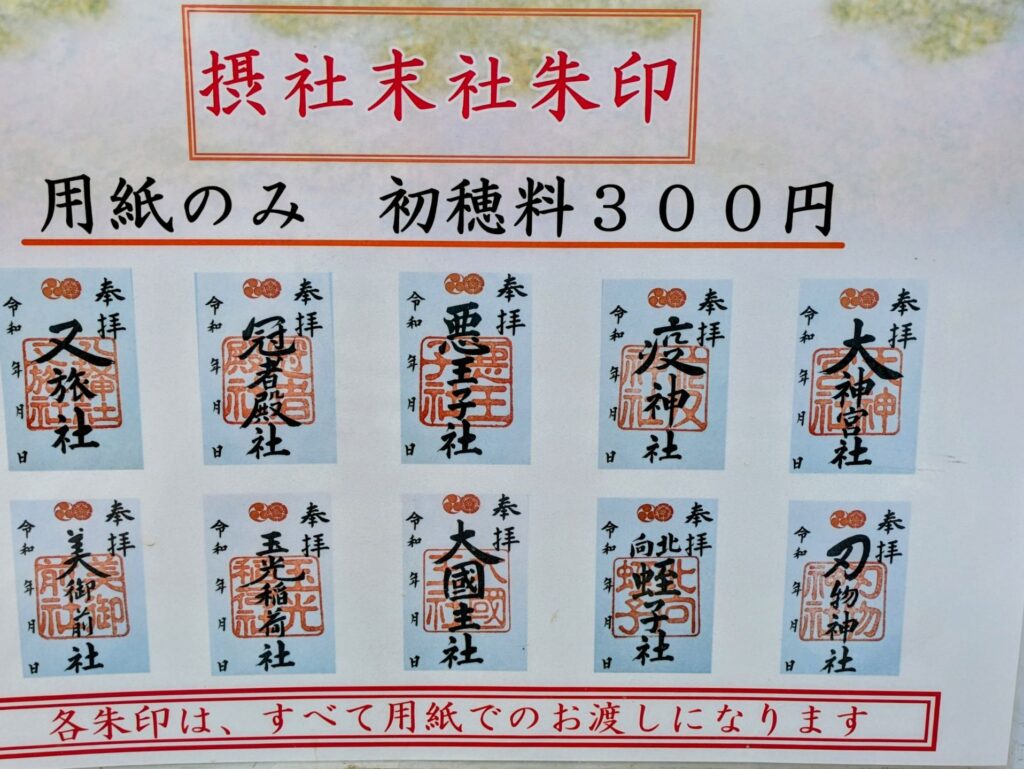 摂社末社朱印
用紙のみ　初穂料３００円
奉拝
又旅社
令和　年　月　日
奉拝
冠者殿社
令和　年　月　日
奉拝
悪王子社
令和　年　月　日
奉拝
疫神社
令和　年　月　日
奉拝
大神宮社
令和　年　月　日
奉拝
美御前社
令和　年　月　日
奉拝
玉光稲荷社
令和　年　月　日
奉拝
大國主社
令和　年　月　日
奉拝
北向蛭子社
令和　年　月　日
奉拝
刃物神社
令和　年　月　日
各朱印は、すべて用紙でのお渡しになります